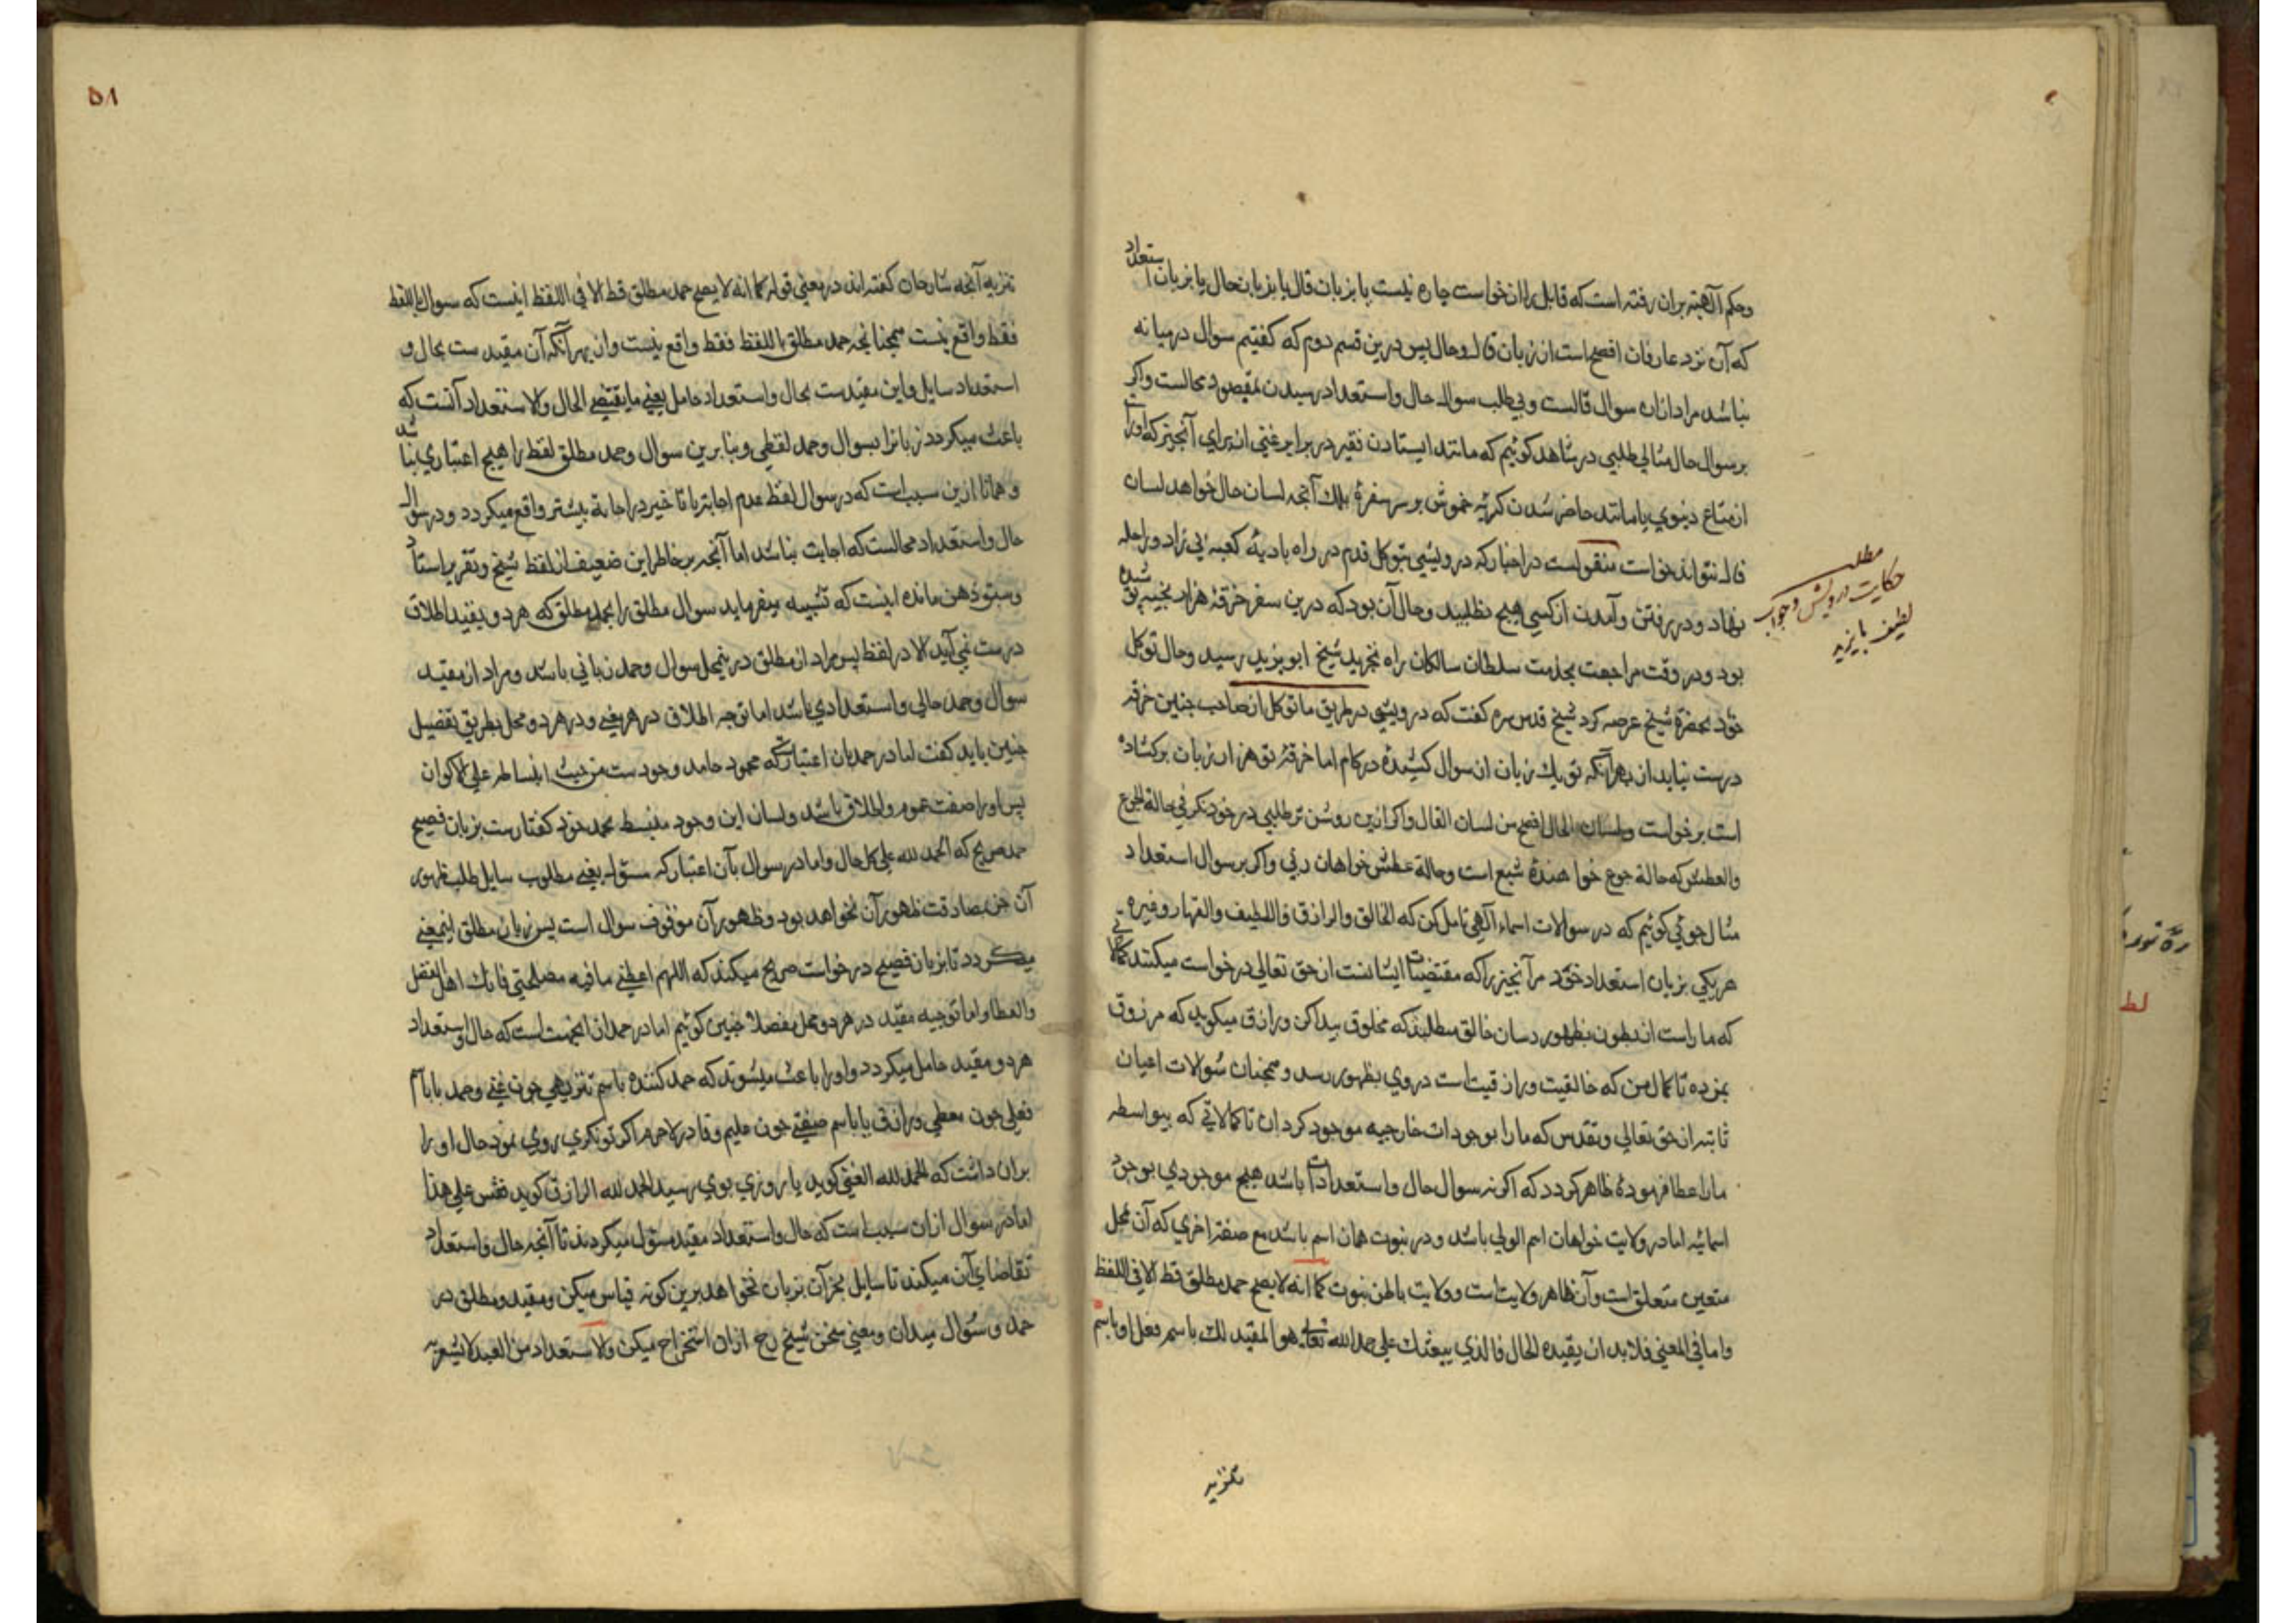 وحکم آلهیته بران رفته است که قابل را از خواست چاره نیست یا بزبان قال یا بزبان حال یا بزبان استعداد
که آن نزد عارفان افصح است از زبان قال وحال پس درین قسم دوم که کفتیم سوال درمیانه
نباشد مراد ازان سوال قالست وبی طلب سوال حال واستعداد رسیدن بمقصود محالست واکر
بر سوال حال مثالی طلبی در شاهد کوئیم که مانند ایستادن فقیر در برابر غنی از برای آنچیز که اورا
از متاع دینوی یا مانند حاضر شدن کربه خموش بر سر سفره بلك آنچه لسان حال خواهد لسان
قال نتواند خواست منقولست در اخبار که درویشی بتوکل قدم در راه بادیه کعبه بی زاد وراحله
نهاد ودر رفتن وآمدن از کسی هیچ نطلبید وحال آن بود که درین سفر خرقه هزار بخیه پوشیده
مطلب
حکایت درویش وجواب
لطیف بایزید
بود ودر وقت مراجعت بخدمت سلطان سالکان راه تجرید شیخ ابو یزید رسید وحال توکل
خود بحضرة شیخ عرضه کرد شیخ قدس سره کفت که درویشی در طریق ما توکل از صاحب چنین خرقه
درست نیاید از بهر آنکه تو یك زبان از سوال کشیده در کام اما خرقه تو هزار زبان برکشاده
است برخواست ولسان الحال افصح من لسان القال واکر ازین روشن تر طلبی در خود نکر فی حالة الجوع
والعطش که حالة جوع خواهنده شبع است وحالة عطش خواهان ری واکر بر سوال استعداد
مثال جوئی کوئیم که در سوالات اسماء آلهی تامل کن که الخالق والرازق واللطیف والقهار وغیره
هر یکی بزبان استعداد خود مر آنچیز را که مقتضیات ایشانست از حق تعالی درخواست میکنند
که ما راست از بطون بظهور رسان خالق میطلبد که مخلوق پیدا کن ورازق میکوید که مرزوق
بمن ده تا کمال من که خالقیت ورازقیت است در وی بظهور رسد وهمچنان سوالات اعیان
ثابته از حق تعالی وتقدس که ما را بوجودات خارجیه موجود کردان تا کمالاتی که بیواسطه
مارا عطا فرموده ظاهر کردد که اکر نه سوال حال واستعدادات باشد هیچ موجودی بوجود
اسمائیه اما در ولایت خواهان اسم الولی باشد ودر نبوت همان اسم باشد مع صفة اخری که آن بمحل
متعین متعلق است وآن ظاهر ولایت است وولایت باطن نبوت کما انه لا یصح حمد مطلق قط الا فی اللفظ
واما فی المعنی فلا بد ان یقیده الحال فالذی یبعثك علی حمد الله تعالی هو المقید لك باسم فعل او باسم
تنزیه
۵۸
تنزیه آنچه شارحان کفته اند در معنی قوله کما انه لا یصح حمد مطلق قط الا فی اللفظ اینست که سوال باللفظ
فقط واقع نیست همچنانچه حمد مطلق باللفظ فقط واقع نیست واز بهر آنکه آن مقید ست بحال و
استعداد سایل واین مقیدست بحال واستعداد حامل یعنی ما یقتضی الحال والاستعداد آنست که
باعث میکردد زبانرا بسوال وحمد لفظی وبنا برین سوال وحمد مطلق لفظ را هیچ اعتباری نباشد
وهمانا ازین سبب است که در سوال لفظ عدم اجابة یا تاخیر در اجابة بیشتر واقع میکردد ودر سوال
حال واستعداد محالست که اجابت نباشد اما آنچه بر خاطر این ضعیف از لفظ شیخ وتقریر استاد
ذهن مانده اینست که تشبیه میفرماید سوال مطلق را بحمد مطلق که هر دو بقید اطلاق
درست نمی آید الا در لفظ پس مراد از مطلق درینمحل سوال وحمد زبانی باشد ومراد از مقید
سوال وحمد حالی واستعدادی باشد اما توجیه اطلاق در هر یعنی ودر هر دو محل بطریق تفضیل
چنین باید کفت اما در حمد بآن اعتبارست که محمود حامد وجودست من حیث انبساطه علی الاکوان
پس اورا صفت عموم واطلاق باشد ولسان این وجود منبسط بحمد خود کفتارست بزبان فصیح
حمد صریح که الحمد لله علی کل حال واما در سوال بآن اعتبار که مسؤل یعنی مطلوب سایل طلب ظهور
آن جز بمصادقت ظهور آن نخواهد بود وظهور آن موقوف سوال است پس زبان مطلق اینمعنی
میکردد تا بزبان فصیح درخواست صریح میکند که اللهم اعطنی ما فیه مصلحتی فانك اهل الفضل
والعطا واما توجیه مقید در هر دو محل مفصلا چنین کوئیم اما در حمد ازینجهت است که حال واستعداد
هر دو مقید حامل میکردد واورا باعث میشوند که حمد کننده باسم تنزیهی چون غنی وحمد یا باسم
فعلی چون معطی ورازق یا باسم صفتی چون علیم وقادر لاجرم اکر توانکری روی نمود حال اورا
بران داشت که الحمد لله الغنی کوید یا روزی بوی رسید الحمد لله الرازق کوید فقس علی هذا
اما در سوال ازان سبب است که حال واستعداد مقید مسؤل میکردند تا آنچه حال واستعداد
تقاضای آن میکند تا سایل بجز آن بزبان نخواهد برین کونه قیاس میکن ومقید ومطلق در
حمد وسؤال میدان ومعنی سخن شیخ رح ازان استخراج میکن والاستعداد من العبد لا یشعر به